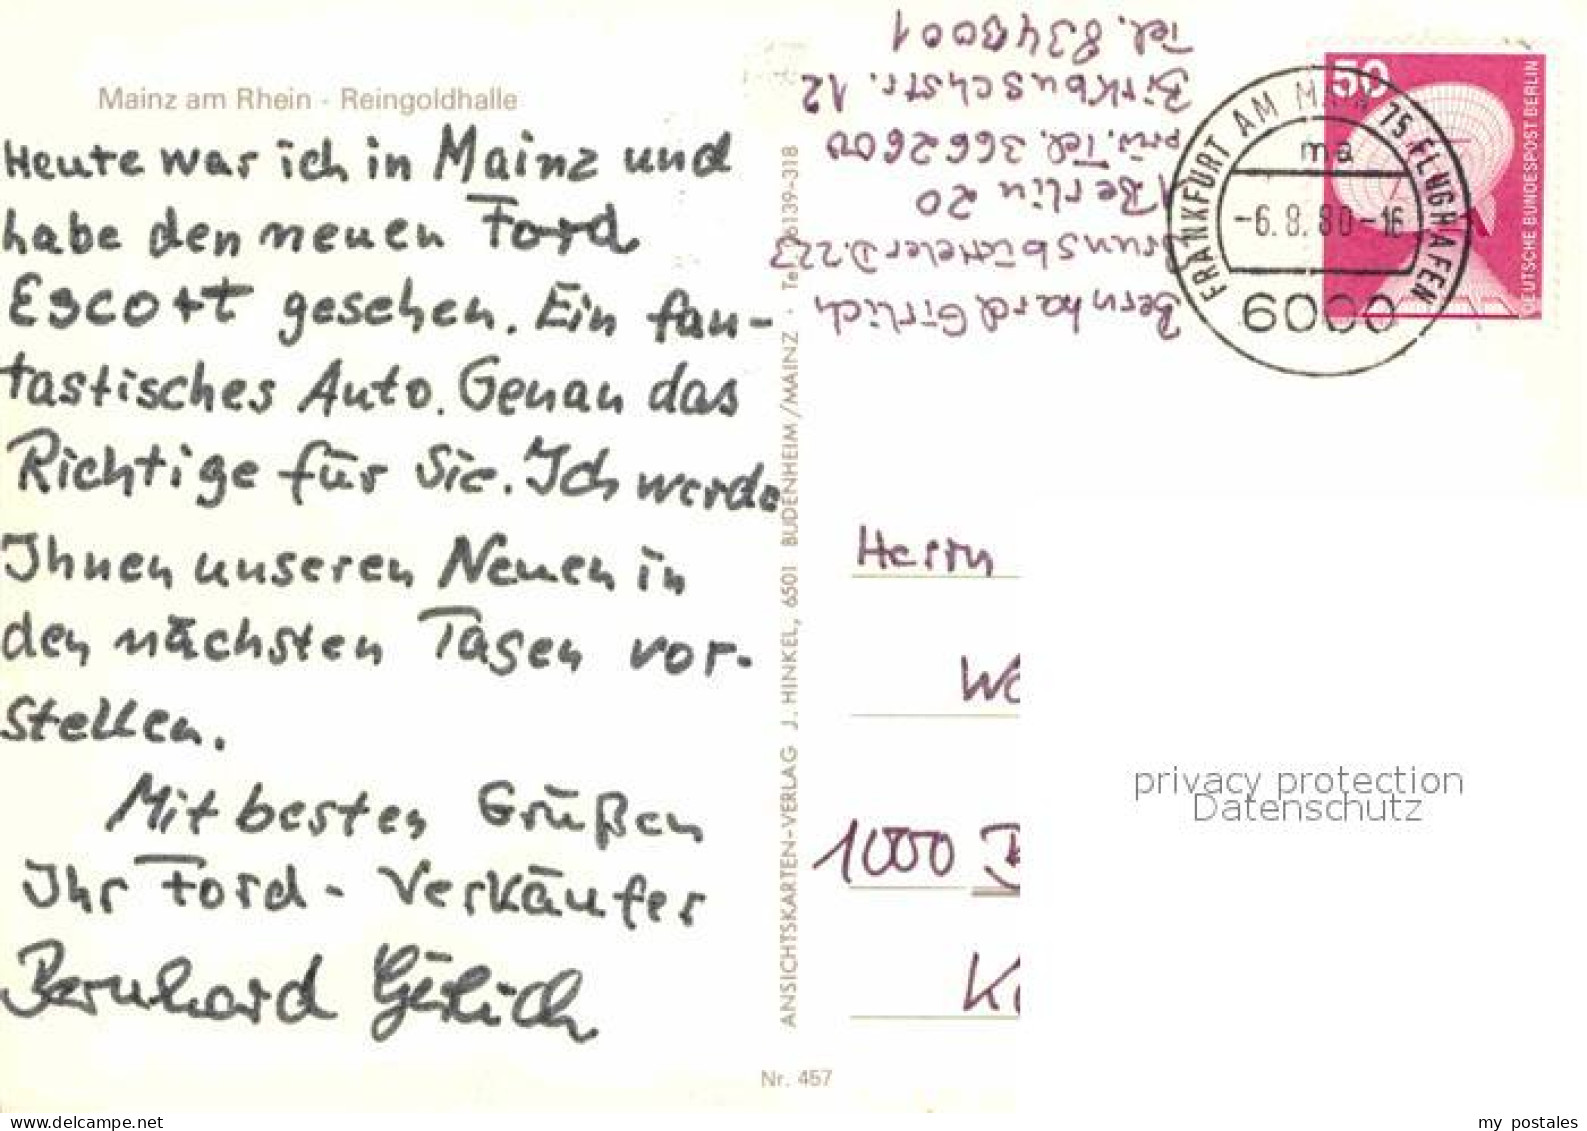 Mainz am Rhein - Reingoldhalle
Heute war ich in Mainz und
habe den neuen Ford
Escort gesehen. Ein fan-
tastisches Auto. Genau das
Richtige für Sie. Ich werde
Ihnen unseren Neuen in
den nächsten Tagen vor-
stellen.
Mit besten Grüßen
Ihr Ford-Verkäufer
Bernhard Girlich
ANSICHTSKARTEN-VERLAG J. HINKEL, 6501 BUDENHEIM/MAINZ · Tel. 06139-318
Nr. 457
Bernhard Girlich
Brunsbütteler D. 223
1 Berlin 20
priv. Tel. 3662600
Birkbuschstr. 12
Tel. 8343001
50
DEUTSCHE BUNDESPOST BERLIN
FRANKFURT AM MAIN 75 FLUGHAFEN
ma
-6.8.80-16
6000
Herrn
1000 B
privacy protection
Datenschutz
my postales